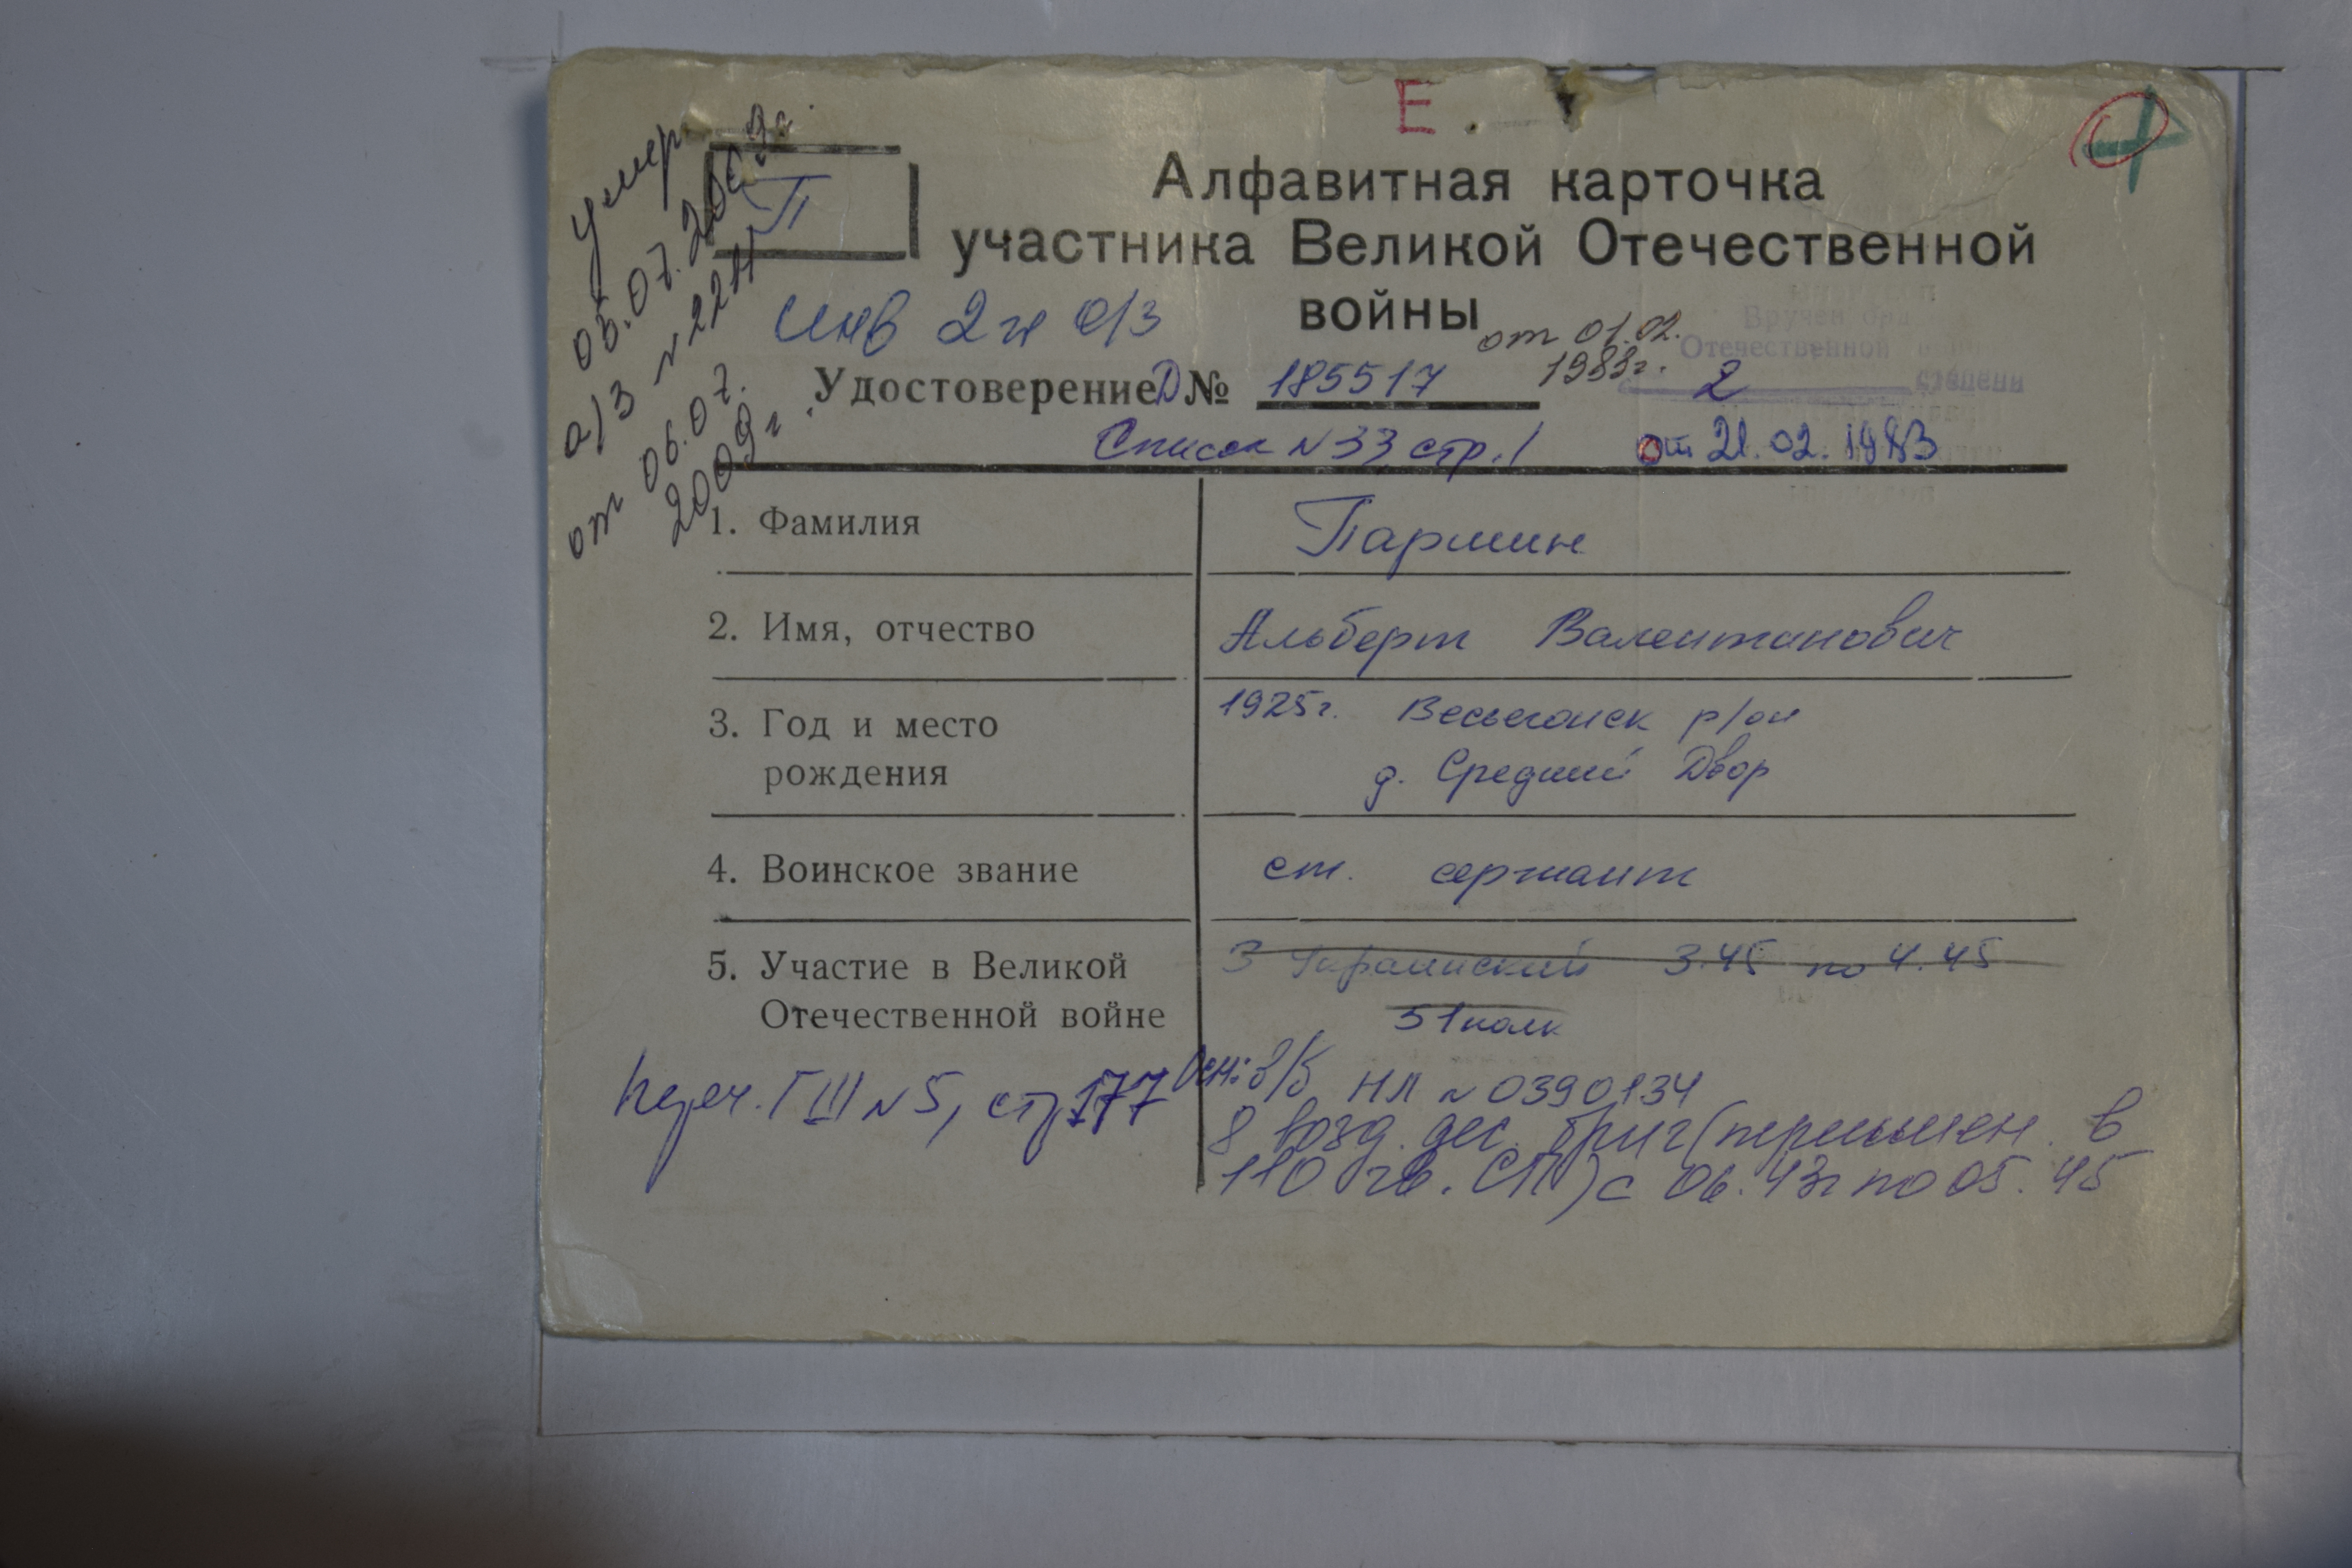 Е
умер
05.07.2009г.
а/з №2211
от 06.07.
2009г.
П
Алфавитная карточка
участника Великой Отечественной
войны
инв 2 гр о/з
от 01.02.
1983г.
Вручен орд
Отечественной
2 степени
Удостоверение Д № 185517
Список №33, стр. 1 от 21.02.1983
1. Фамилия Паршин
2. Имя, отчество Альберт Валентинович
3. Год и место рождения 1925г. Весьегонск р/он
д. Средний Двор
4. Воинское звание ст. сержант
5. Участие в Великой Отечественной войне 3 Украинский 3.45 по 4.45
51 полк
Осн: в/б НЛ №0390134
8 возд. дес. бриг (переимен. в
110 гв. СП) с 06.43г по 05.45
Переч. ГШ №5, стр 177